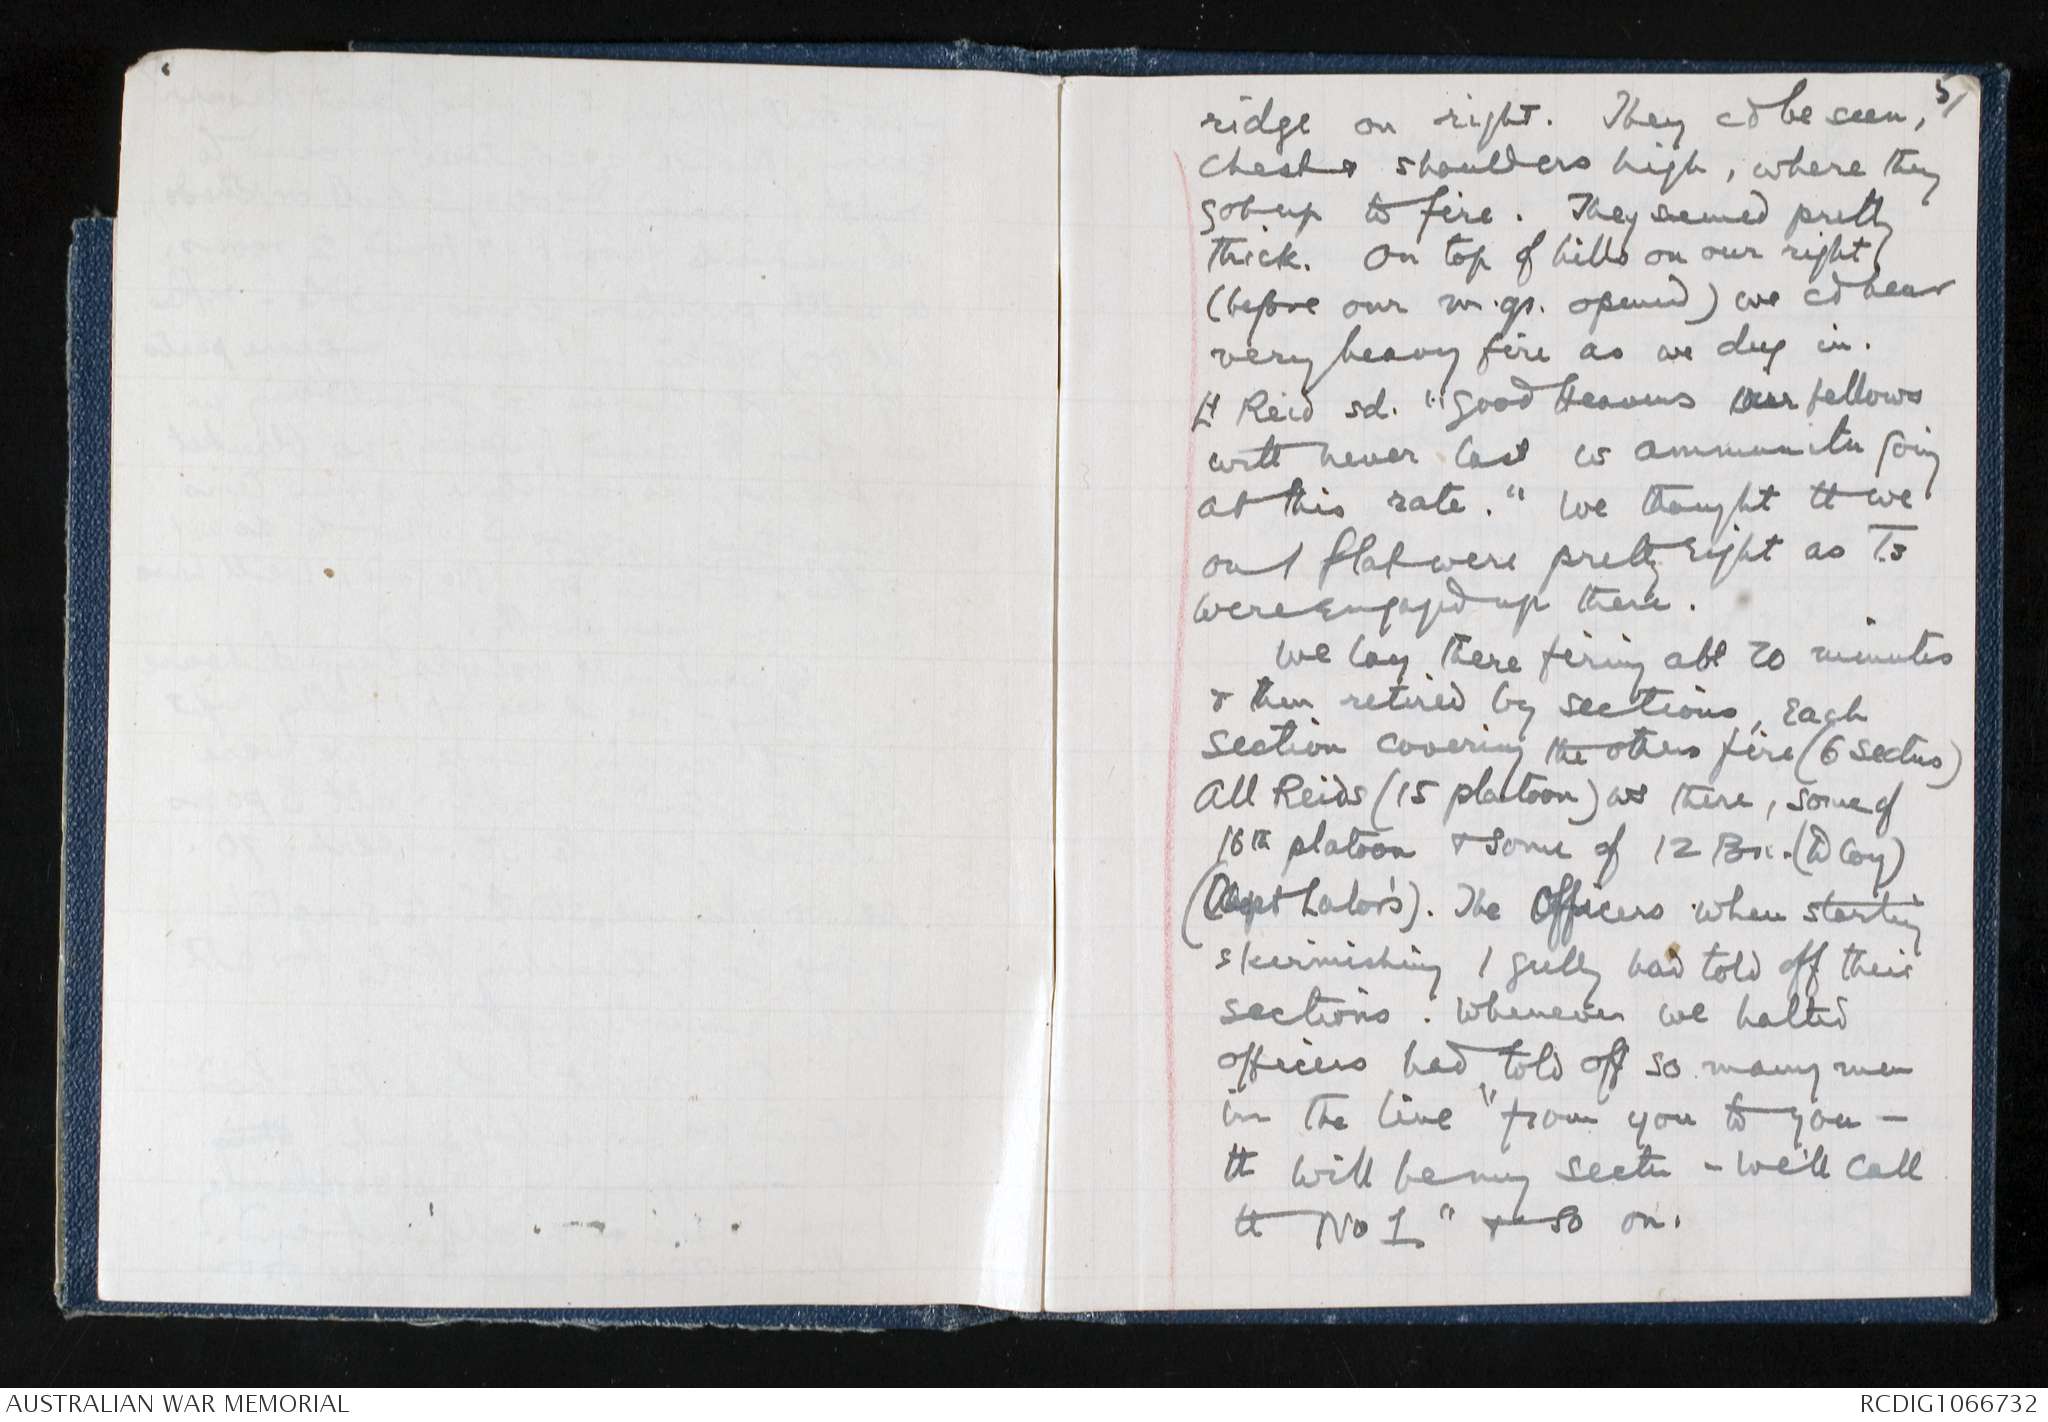 51
ridge on right. They cd be seen,
chest & shoulders high, where they
got up to fire. They seemed pretty
thick. On top of hills on our right
(before our m.gs. opened) we cd hear
very heavy fire as we dug in.
Lt Reid sd. "Good Heavens our fellows
will never last w ammunitn going
at this rate." We thought tt we
on / flat were pretty right as Ts
were engaged up there.
We lay there firing abt 20 minutes
& then retired by sections, each
section covering the others fire (6 sectns)
All Reids (15 platoon) ws there, some of
16th platoon & some of 12 Bn. (D Coy)
(Capt Lalor's). The Officers when starting
skirmishing / gully had told off their
sections. Whenever we halted
officers had told off so many men
in the line "from you to you -
tt will be my sectn - we'll call
tt No 1" & so on.
AUSTRALIAN WAR MEMORIAL
RCDIG1066732